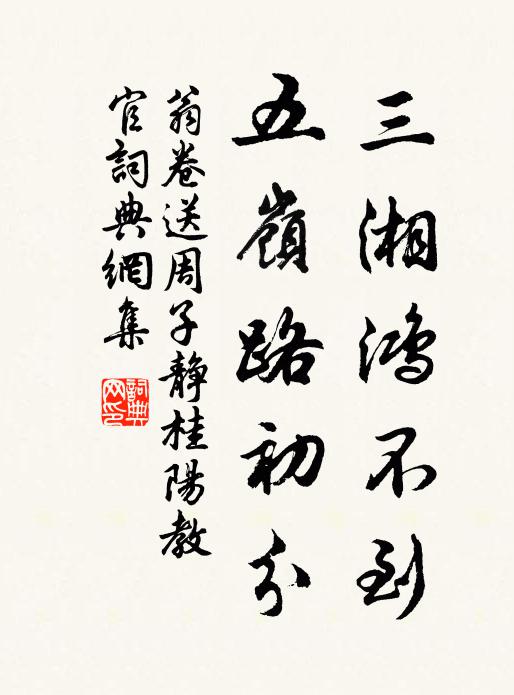 三湘鴻不到
五嶺路初分
翁卷送周子靜桂陽教
官詞典網集
詞典
网印